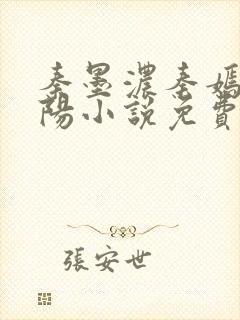 秦墨濃秦嫣
陽小說免費
張安世